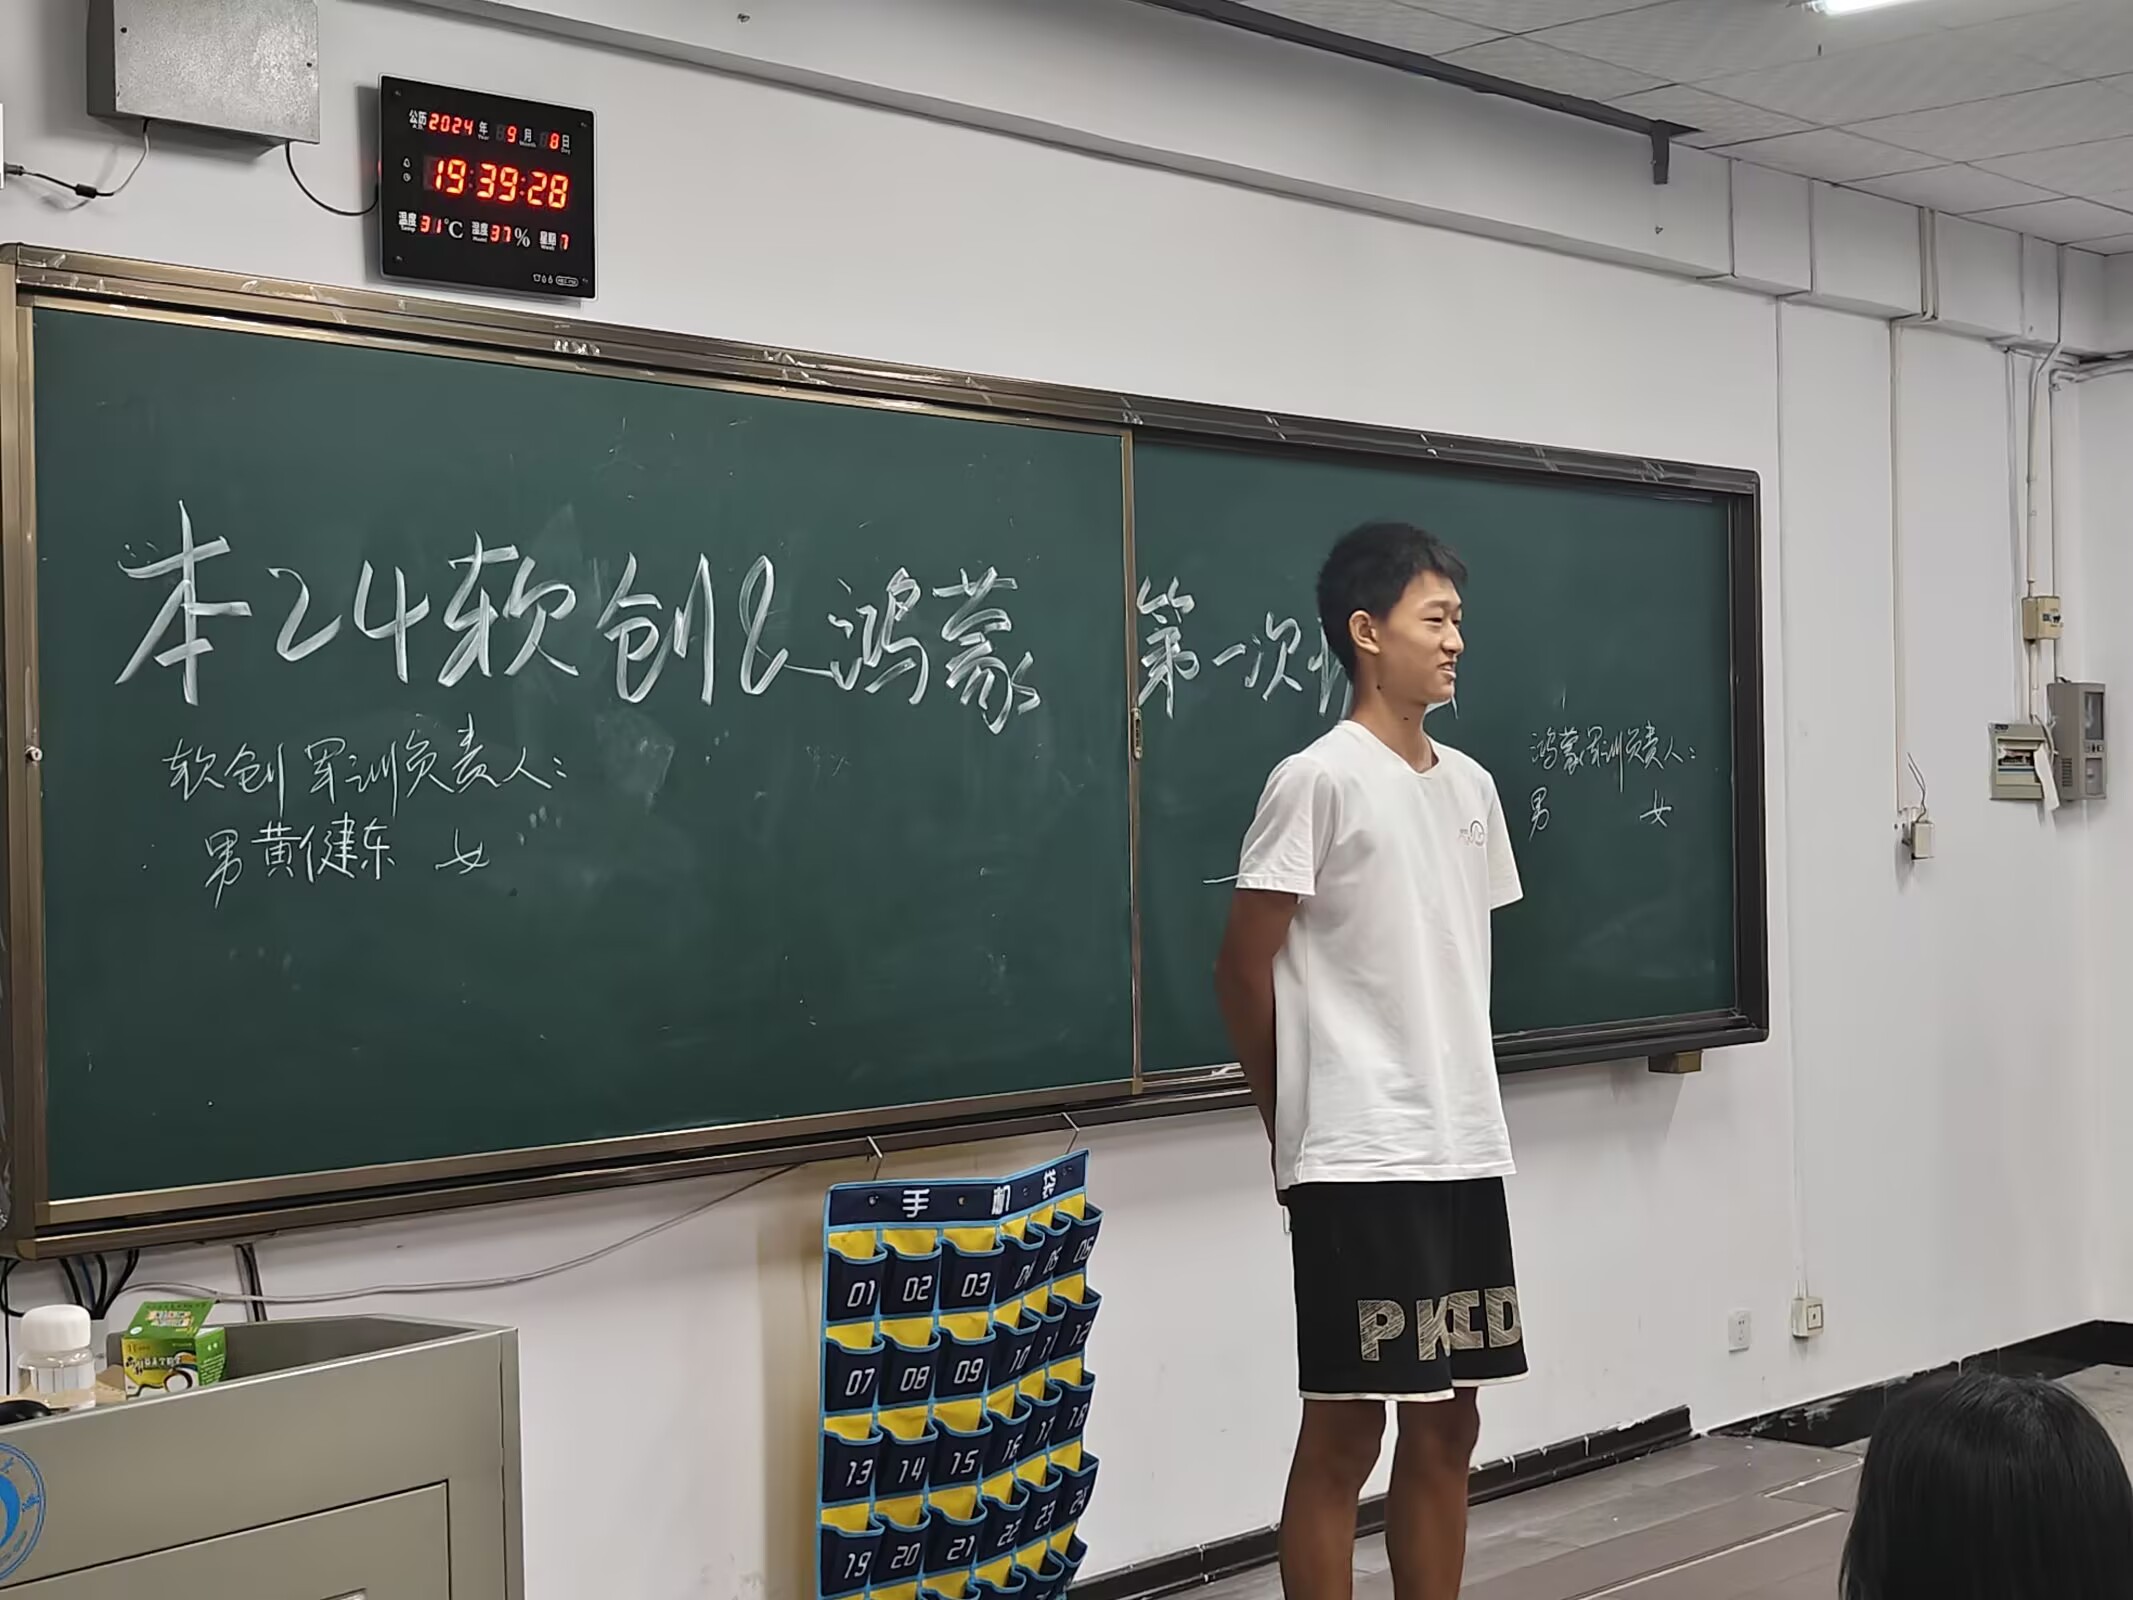 公历 2024 年 9 月 8 日
19:39:28
温度 31℃ 湿度 37% 星期 7
本24软创&鸿蒙 第一次
软创军训负责人:
男黄健东 女
鸿蒙军训负责人:
男 女
手机袋
01 02 03 04 05 06
07 08 09 10 11 12
13 14 15 16 17 18
19 20 21 22 23 24
PKID